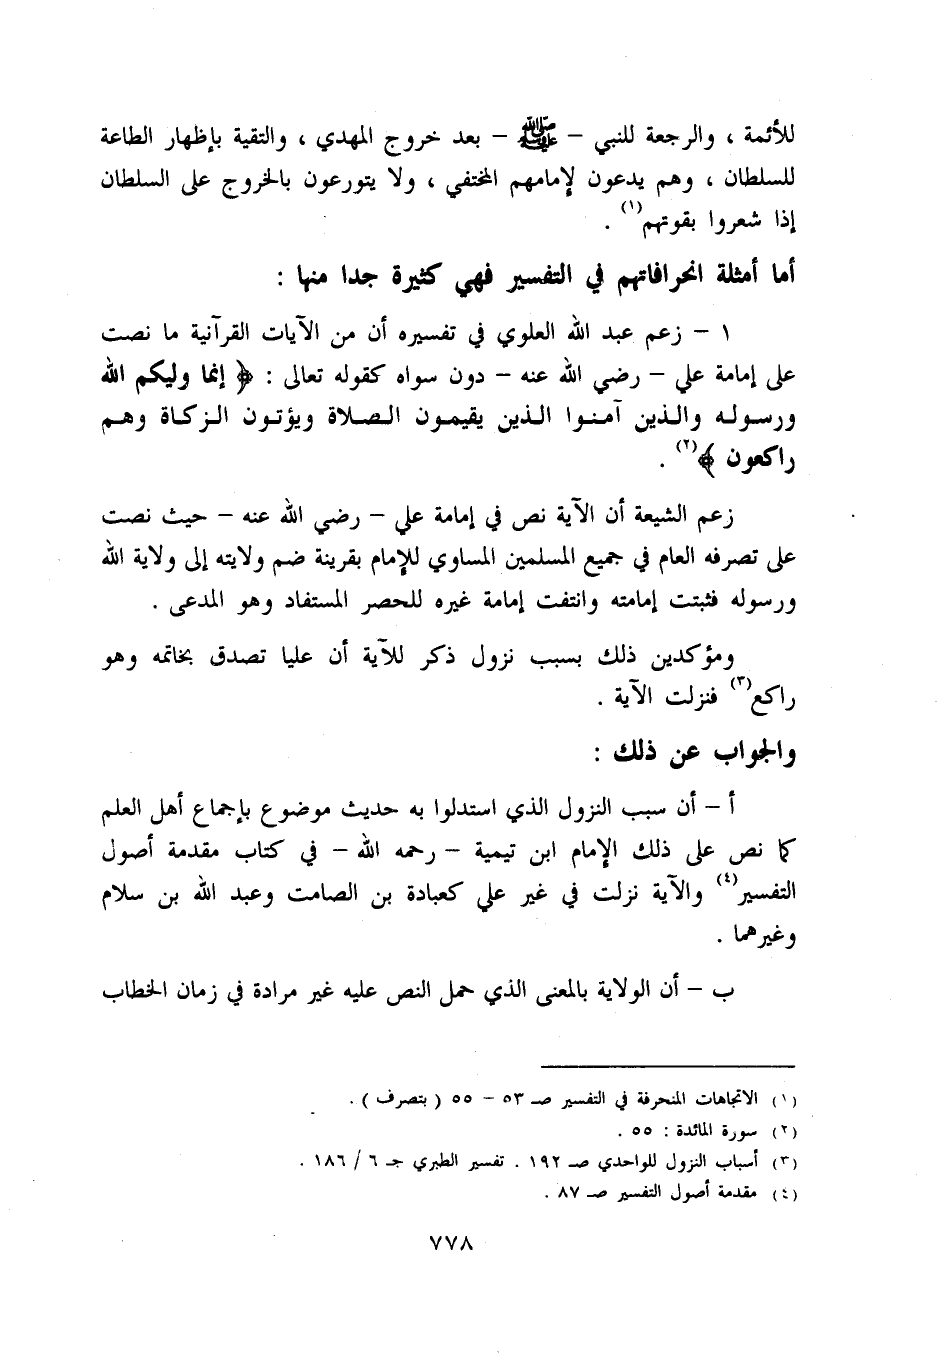 للأئمة ، والرجعة للنبي – ﷺ – بعد خروج المهدي ، والتقية بإظهار الطاعة
للسلطان ، وهم يدعون لإمامهم المختفي ، ولا يتورعون بالخروج على السلطان
إذا شعروا بقوتهم(١) .
أما أمثلة انحرافاتهم في التفسير فهي كثيرة جدا منها :
١ – زعم عبد الله العلوي في تفسيره أن من الآيات القرآنية ما نصت
على إمامة علي – رضي الله عنه – دون سواه كقوله تعالى : ﴿ إنما وليكم الله
ورسوله والذين آمنوا الذين يقيمون الصلاة ويؤتون الزكاة وهم
راكعون ﴾(٢) .
زعم الشيعة أن الآية نص في إمامة علي – رضي الله عنه – حيث نصت
على تصرفه العام في جميع المسلمين المساوي للإمام بقرينة ضم ولايته إلى ولاية الله
ورسوله فثبتت إمامته وانتفت إمامة غيره للحصر المستفاد وهو المدعى .
ومؤكدين ذلك بسبب نزول ذكر للآية أن عليا تصدق بخاتمه وهو
راكع(٣) فنزلت الآية .
والجواب عن ذلك :
أ – أن سبب النزول الذي استدلوا به حديث موضوع بإجماع أهل العلم
كما نص على ذلك الإمام ابن تيمية – رحمه الله – في كتاب مقدمة أصول
التفسير(٤) والآية نزلت في غير علي كعبادة بن الصامت وعبد الله بن سلام
وغيرهما .
ب – أن الولاية بالمعنى الذي حمل النص عليه غير مرادة في زمان الخطاب
(١) الاتجاهات المنحرفة في التفسير صـ ٥٣ – ٥٥ ( بتصرف ) .
(٢) سورة المائدة : ٥٥ .
(٣) أسباب النزول للواحدي صـ ١٩٢ . تفسير الطبري جـ ٦ / ١٨٦ .
(٤) مقدمة أصول التفسير صـ ٨٧ .
٧٧٨